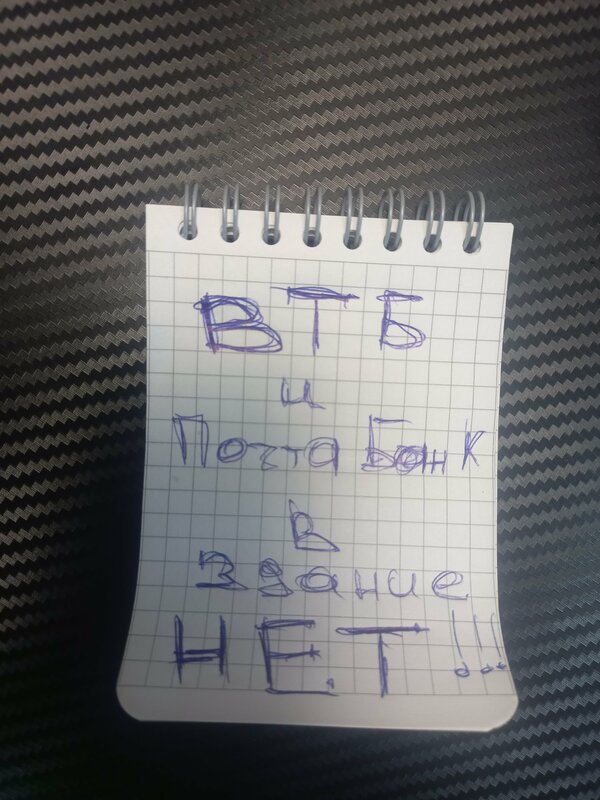 ВТБ
и
Почта Банк
в
здание
НЕТ!!!